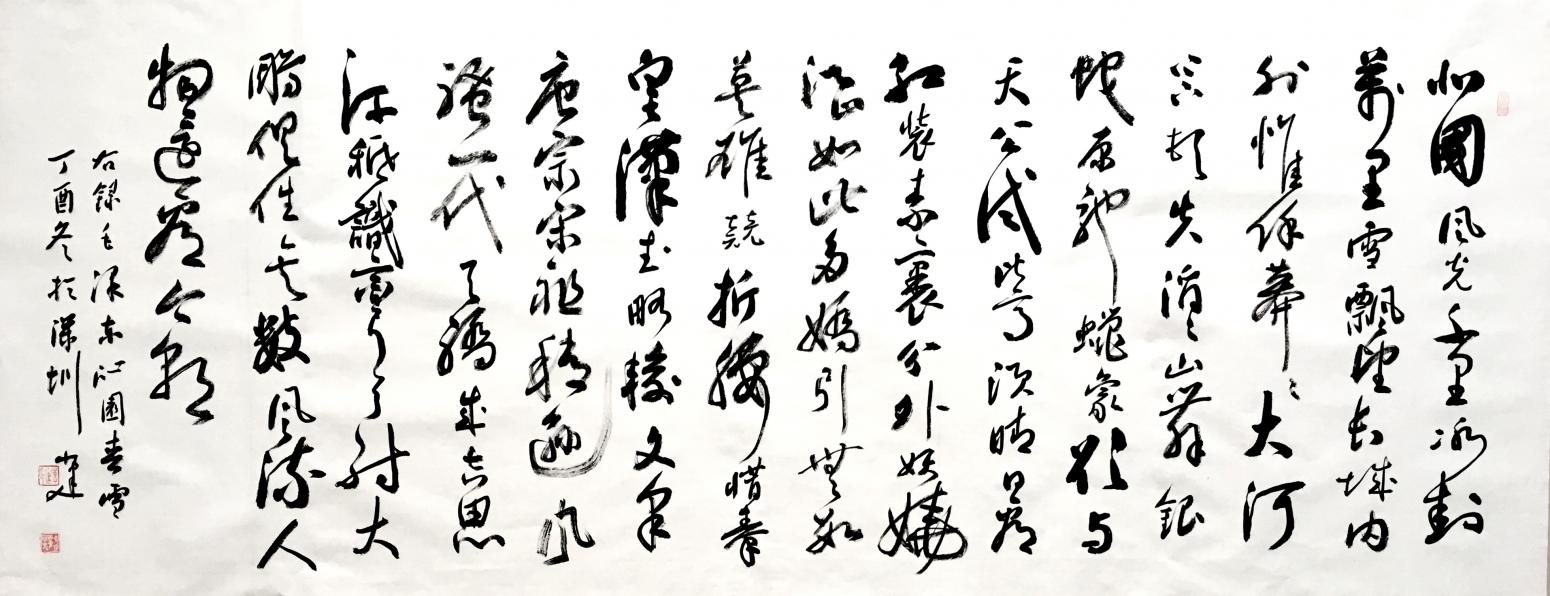 北國風光千里冰封
萬里雪飄望長城內
外惟餘莽〻大河
上下頓失滔〻山舞銀
蛇原馳蠟象欲與
天公試比高須晴日看
紅裝素裹分外妖嬈
江山如此多嬌引無數
英雄競折腰惜秦
皇漢武略輸文采
唐宗宋祖稍遜風
騷一代天驕成吉思
汗祗識彎弓射大
鵰俱往矣數風流人
物還看今朝
右錄毛澤東沁園春雪
丁酉冬於深圳